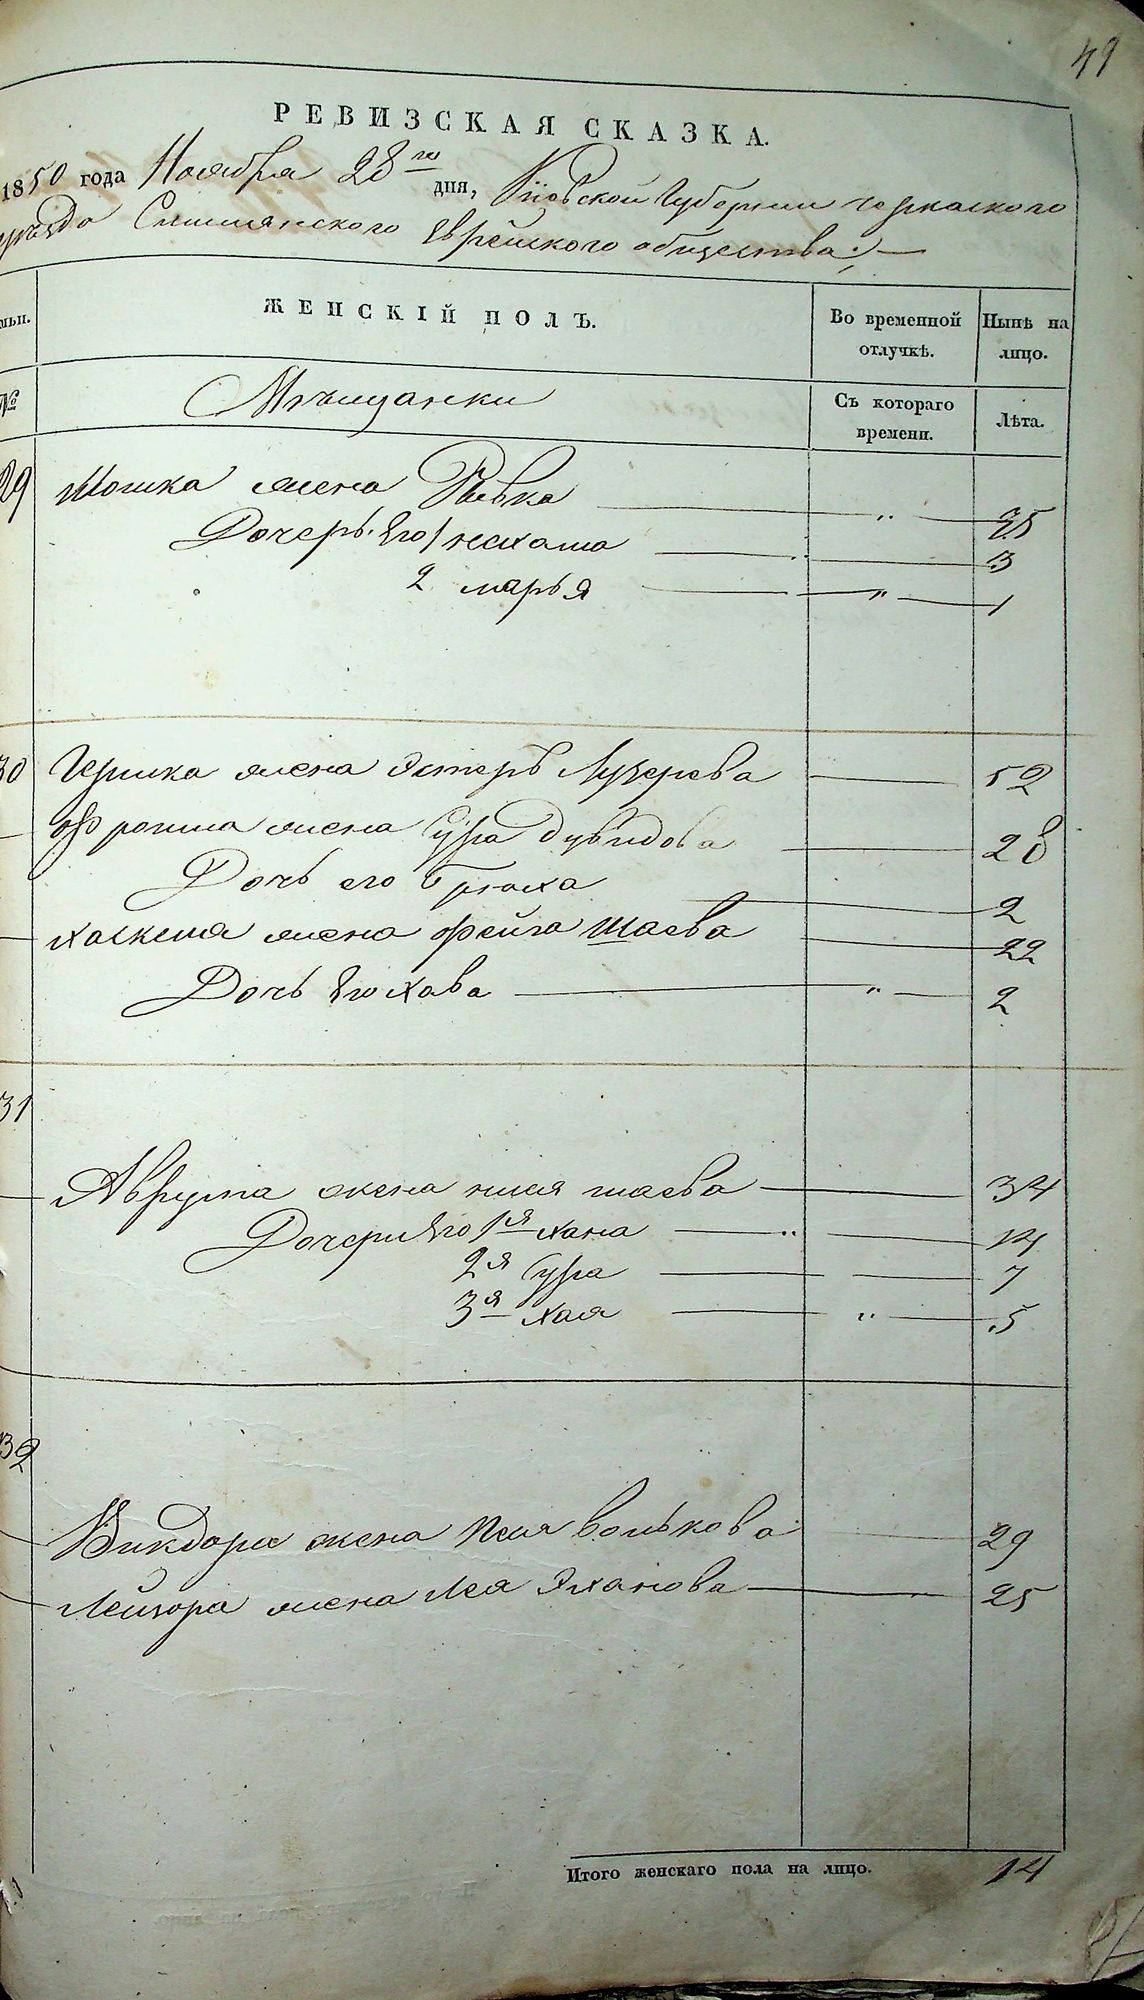 49
РЕВИЗСКАЯ СКАЗКА.
1850 года Ноября 28го дня, Кіовской Губерніи черкаского
уезда Смилянского Еврейского общества
ЖЕНСКІЙ ПОЛЪ.
Во временной отлучкѣ.
Нынѣ на лицо.
№
Мѣщанки
Съ котораго времени.
Лѣта.
29 Мошка жена Рывка " 35
Дочерь Его 1 нехама 3
2 марья " 1
30 Гершка жена Эстеръ Лузерева 52
Фроима жена Сура дувидова 28
Дочь его Брюха 2
Хаскеля жена фейга шаева 22
Дочь Его Хава " 2
31
Аврума жена шаева 34
Дочери Его 1я хана " 14
2я Сура 7
3я хая " 5
32
Викдора жена Волькова 29
Лейзора жена Лея Элханова 25
Итого женскаго пола на лицо. 14